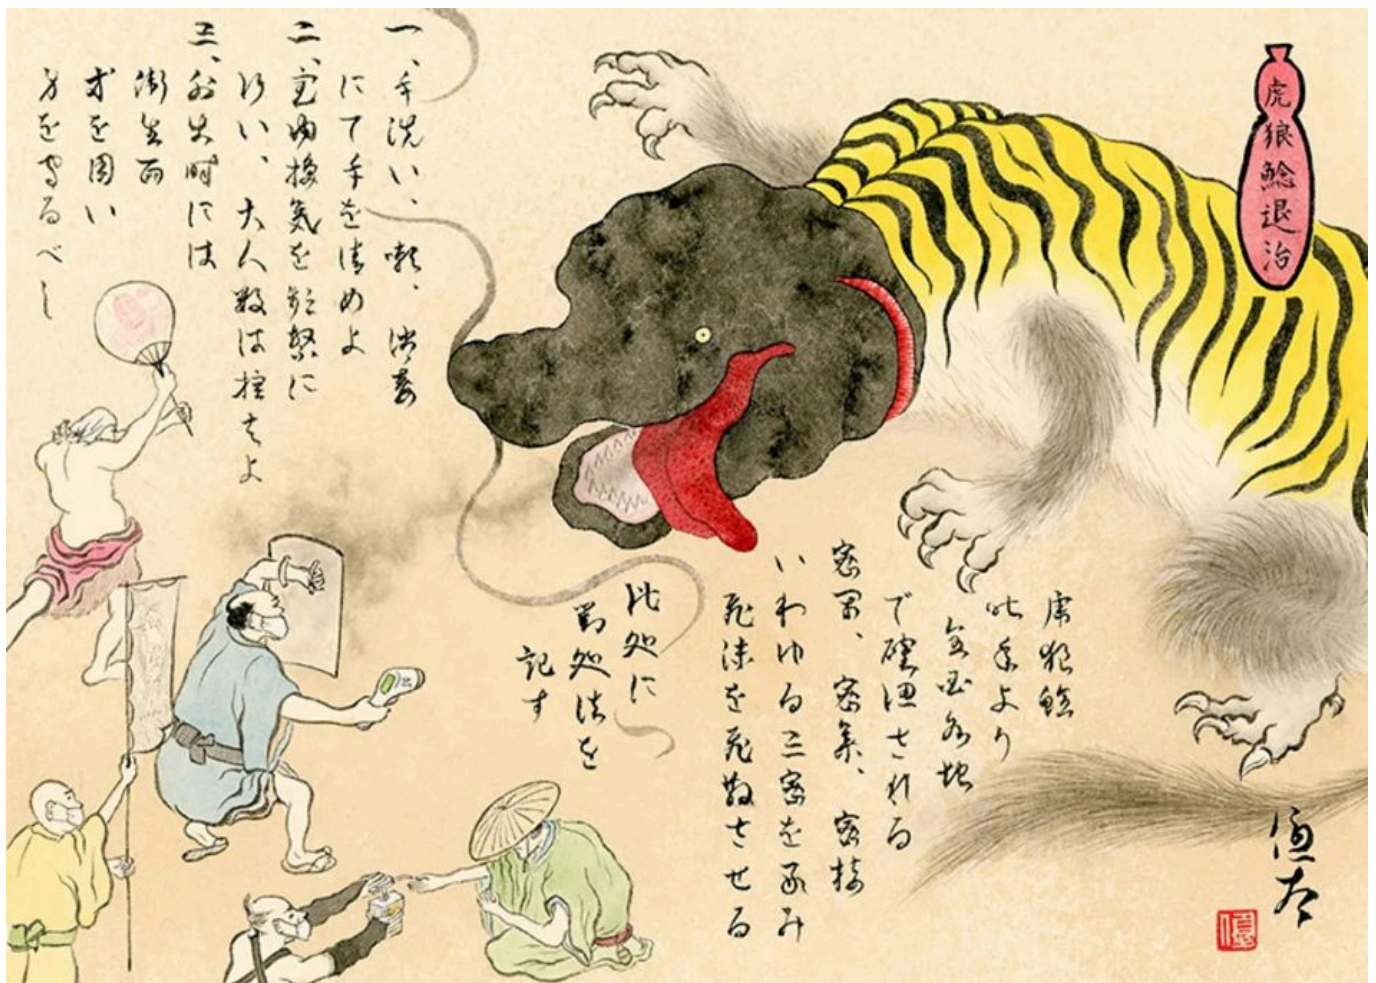 虎狼鯰退治
虎狼鯰
此年より
全国各地
で確認される
密閉、密集、密接
いわゆる三密を好み
飛沫を飛散させる
此処に
対処法を
記す
一、手洗い、嗽、消毒
にて手を清めよ
二、室内換気を頻繁に
行い、大人数は控えよ
三、外出時には
衛生面
を用い
身を守るべし